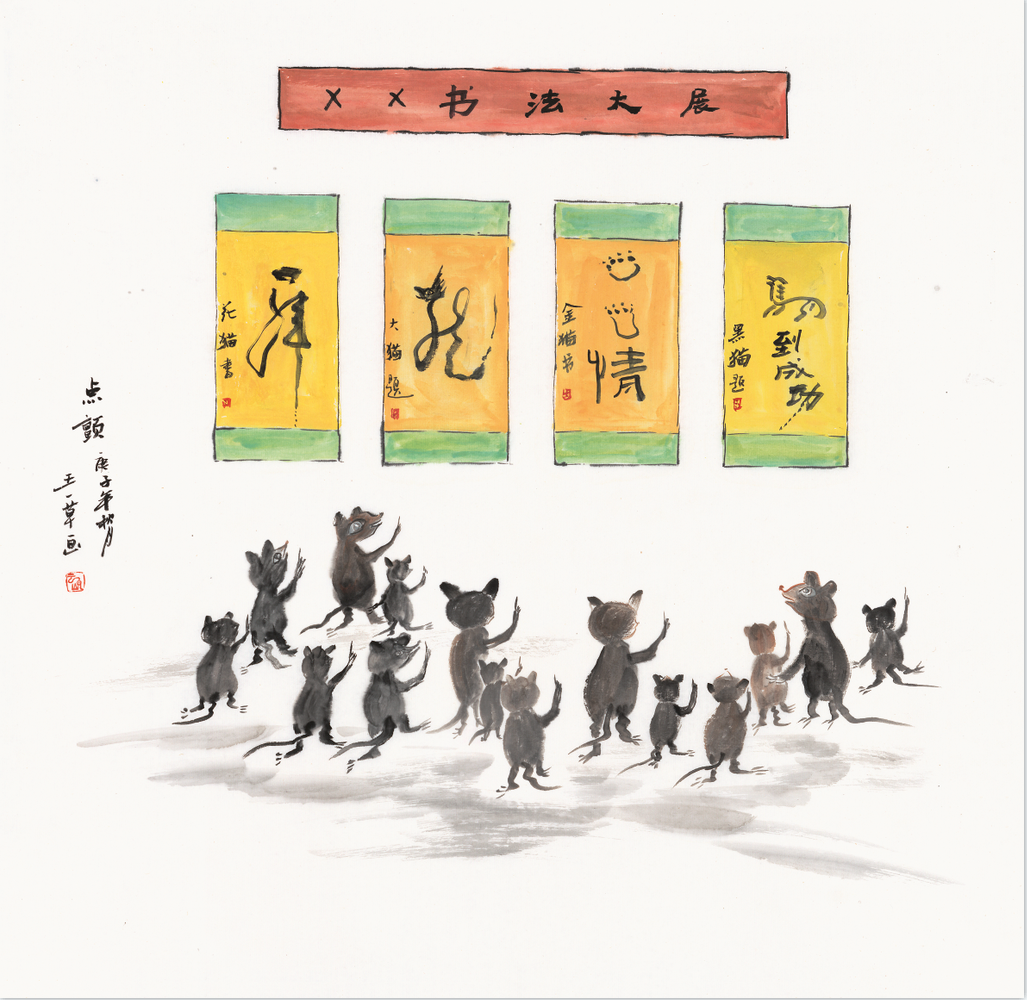 X X 书法大展
花猫書
龙
大猫题
情
金猫书
馬到成功
黑猫题
点顫
庚子年秋月
王一草画